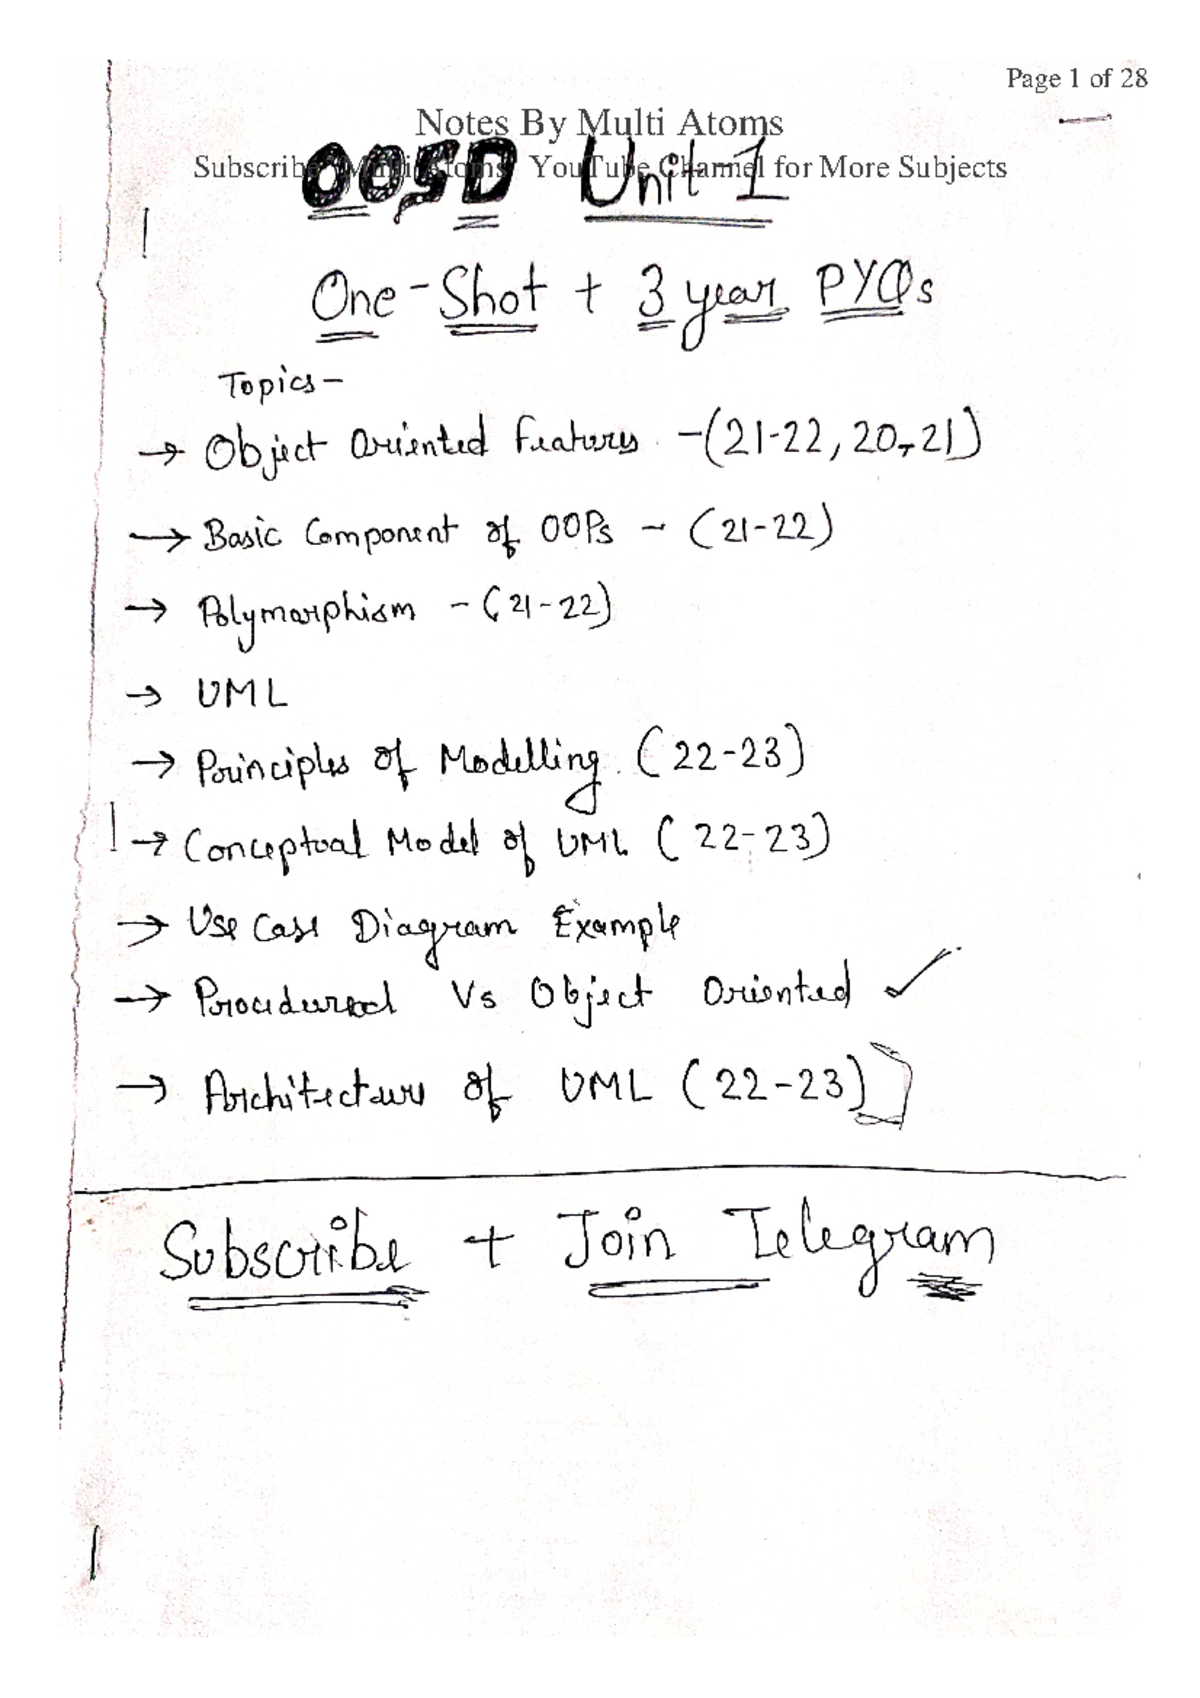 Page 1 of 28
Notes By Multi Atoms
Subscribe Multi Atoms YouTube Channel for More Subjects
OOSD Unit-1
One-Shot + 3 year PYQs
Topics-
→ Object Oriented Features - (21-22, 20-21)
→ Basic Component of OOPs - (21-22)
→ Polymorphism - (21-22)
→ UML
→ Principles of Modelling (22-23)
→ Conceptual Model of UML (22-23)
→ Use Case Diagram Example
→ Procedural Vs Object Oriented ✓
→ Architecture of UML (22-23)]
Subscribe + Join Telegram